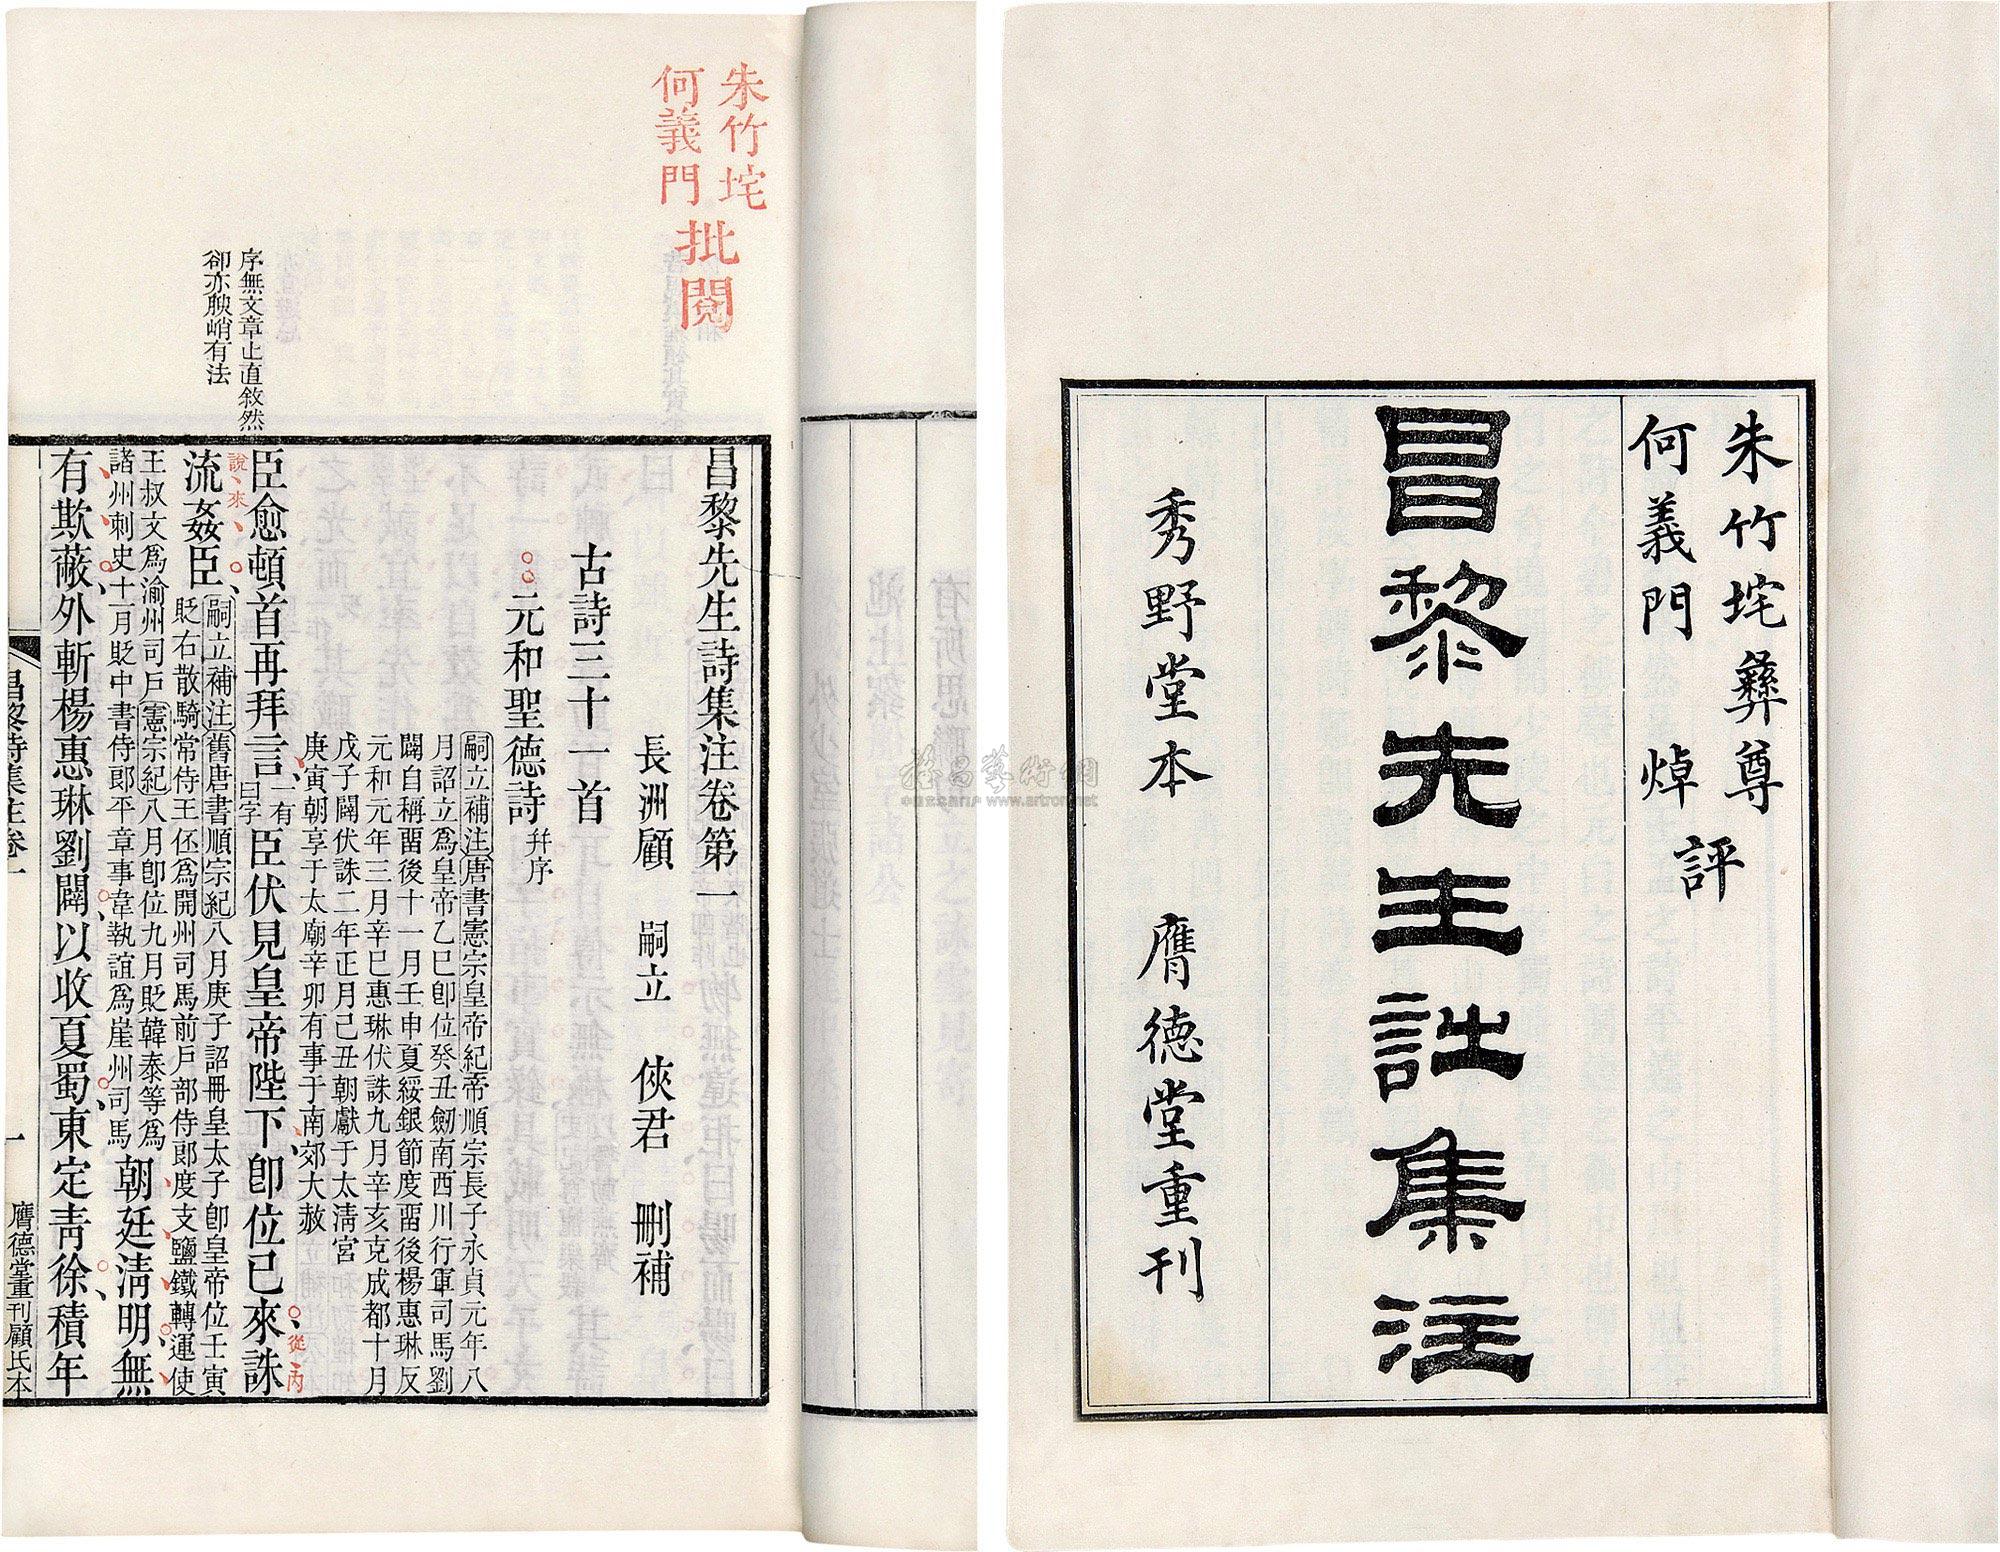 朱竹垞彝尊
何義門焯
評
昌黎先生詩集注
秀野堂本 膺德堂重刊
朱竹垞
何義門
批閱
序無文章止直敘然
卻亦腴峭有法
昌黎先生詩集注卷第一
長洲顧 嗣立 俠君 刪補
古詩三十一首
元和聖德詩幷序
嗣立補注唐書憲宗皇帝紀帝順宗長子永貞元年八
月詔立爲皇帝乙巳卽位癸丑劒南西川行軍司馬劉
闢自稱畱後十一月壬申夏綏銀節度畱後楊惠琳反
元和元年三月辛巳惠琳伏誅九月辛亥克成都十月
戊子闢伏誅二年正月己丑朝獻于太淸宮
庚寅朝享于太廟辛卯有事于南郊大赦
臣愈頓首再拜言一有曰字臣伏見皇帝陛下卽位已來誅
從丙
說來
流姦臣嗣立補注舊唐書順宗紀八月庚子詔冊皇太子卽皇帝位壬寅
貶右散騎常侍王伾爲開州司馬前戶部侍郞度支鹽鐵轉運使
王叔文爲渝州司戶憲宗紀八月卽位九月貶韓泰等爲
諸州刺史十一月貶中書侍郞平章事韋執誼爲崖州司馬
朝廷淸明無
有欺蔽外斬楊惠琳劉闢以收夏蜀東定靑徐積年
昌黎詩集注卷一
一
膺德堂重刊顧氏本
www.artron.net